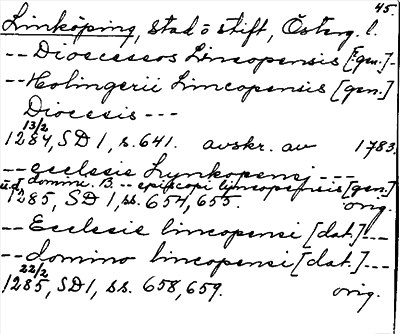 45.
Linköping, stad o stift, Österg. l.
-- Dioceseos Lincopensis [gen.] -
-- Holingerii Lincopensis [gen.]
Diocesis ---
13/2
1284, SD 1, s. 641. avskr. av 1783.
-- ecclesie Lynkopensj ---
u.d. domini. B. -- episcopi lyncopensis [gen.]
1285, SD 1, ss. 654, 655. orig.
-- Ecclesie lincopensi [dat.] ---
-- domino lincopensi [dat.] ---
22/2
1285, SD 1, ss. 658, 659. orig.